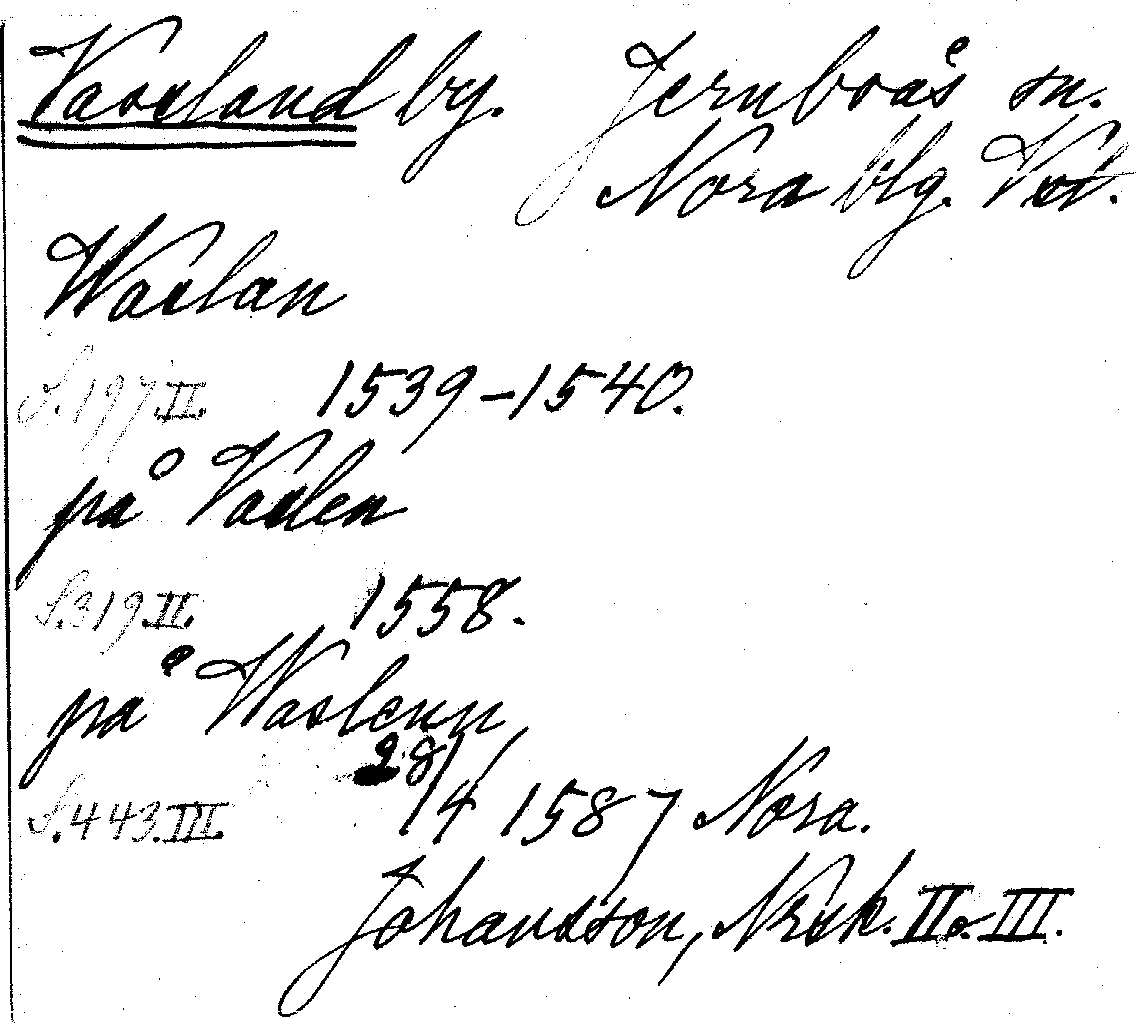 Vassland by. Jernboås sn.
Nora blg. Vst.
Waslan
S.197.II. 1539–1540.
på Vaslen
S.319.II. 1558.
på Waslenn
S.443.III. 28/4 1587 Nora.
Johansson, Nrsk. II o. III.